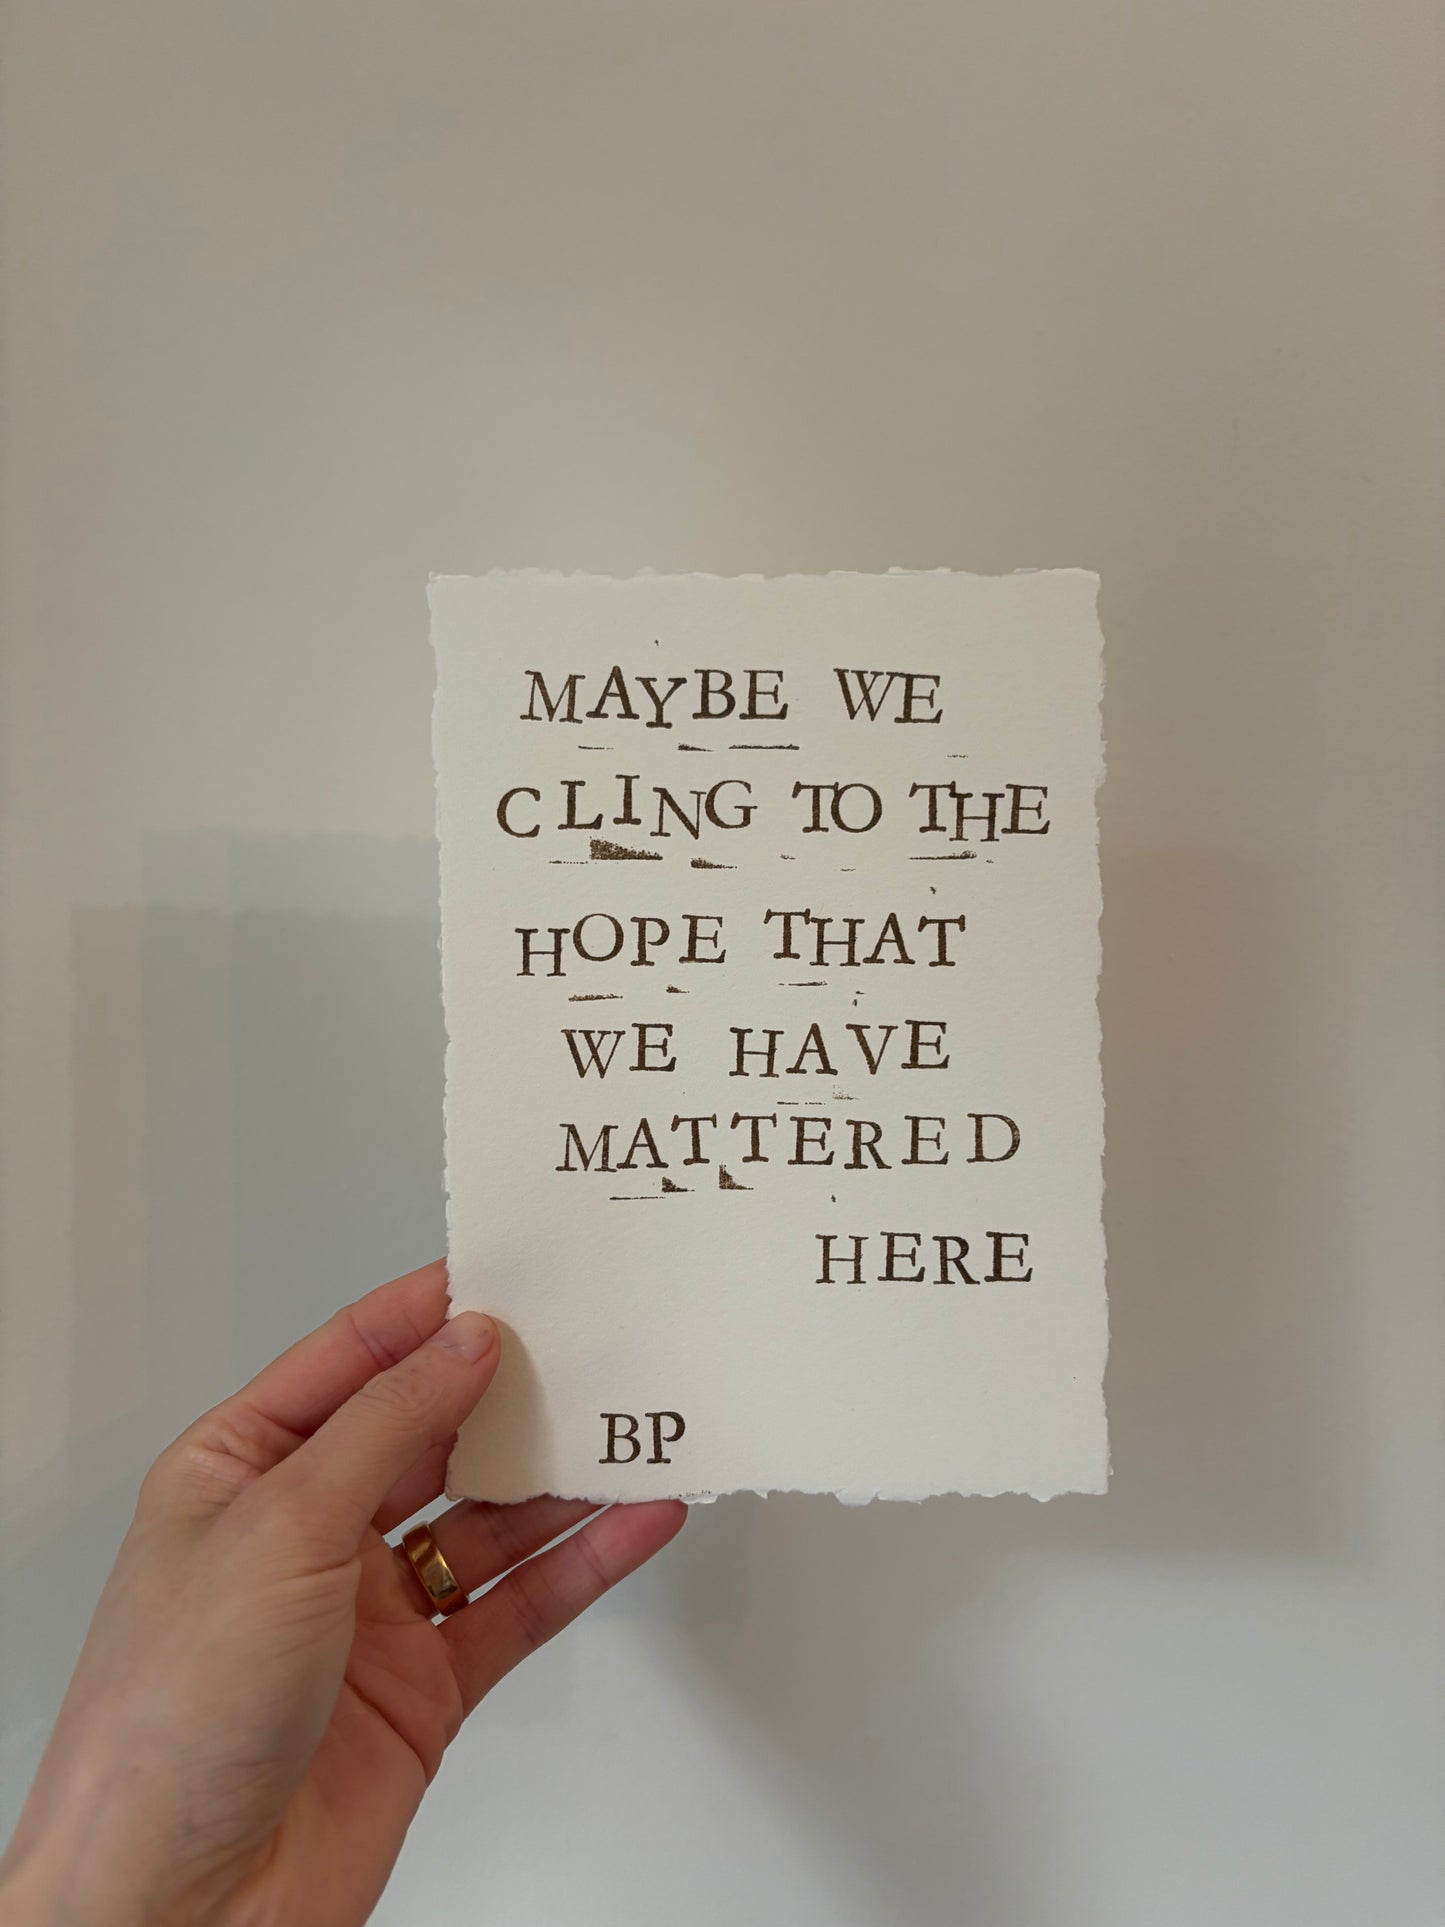 MAYBE WE
CLING TO THE
HOPE THAT
WE HAVE
MATTERED
HERE
BP